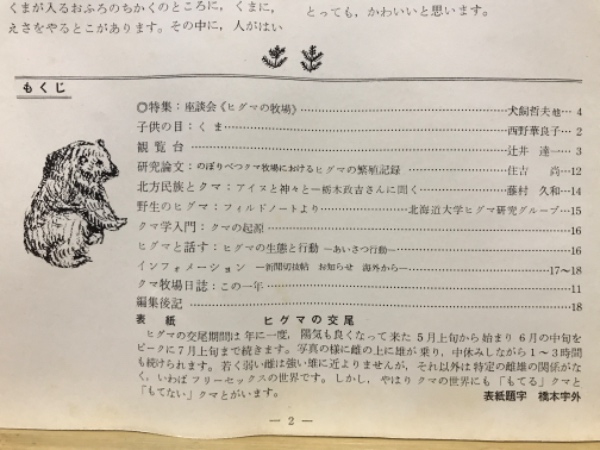 くまが入るおふろのちかくのところに、くまに、
えさをやるとこがあります。その中に、人がはい
とっても、かわいいと思います。
もくじ
◎特集：座談会《ヒグマの牧場》…犬飼哲夫他…4
子供の目：くま…西野華良子…2
観覧台…辻井達一…3
研究論文：のぼりべつクマ牧場におけるヒグマの繁殖記録…住吉尚…12
北方民族とクマ：アイヌと神々と―栃木政吉さんに聞く…藤村久和…14
野生のヒグマ：フィルドノートより…北海道大学ヒグマ研究グループ…15
クマ学入門：クマの起源…16
ヒグマと話す：ヒグマの生態と行動―あいさつ行動―…16
インフォメーション―新聞切抜帖 お知らせ 海外から―…17～18
クマ牧場日誌：この一年…11
編集後記…18
表紙 ヒグマの交尾
ヒグマの交尾期間は年に一度，陽気も良くなって来た5月上旬から始まり6月の中旬を
ピークに7月上旬まで続きます。写真の様に雌の上に雄が乗り，中休みしながら1～3時間
も続けられます。若く弱い雌は強い雄に近よりませんが，それ以外は特定の雌雄の関係がな
く，いわばフリーセックスの世界です。しかし，やはりクマの世界にも「もてる」クマと
「もてない」クマとがいます。
表紙題字 橋本宇外
― 2 ―